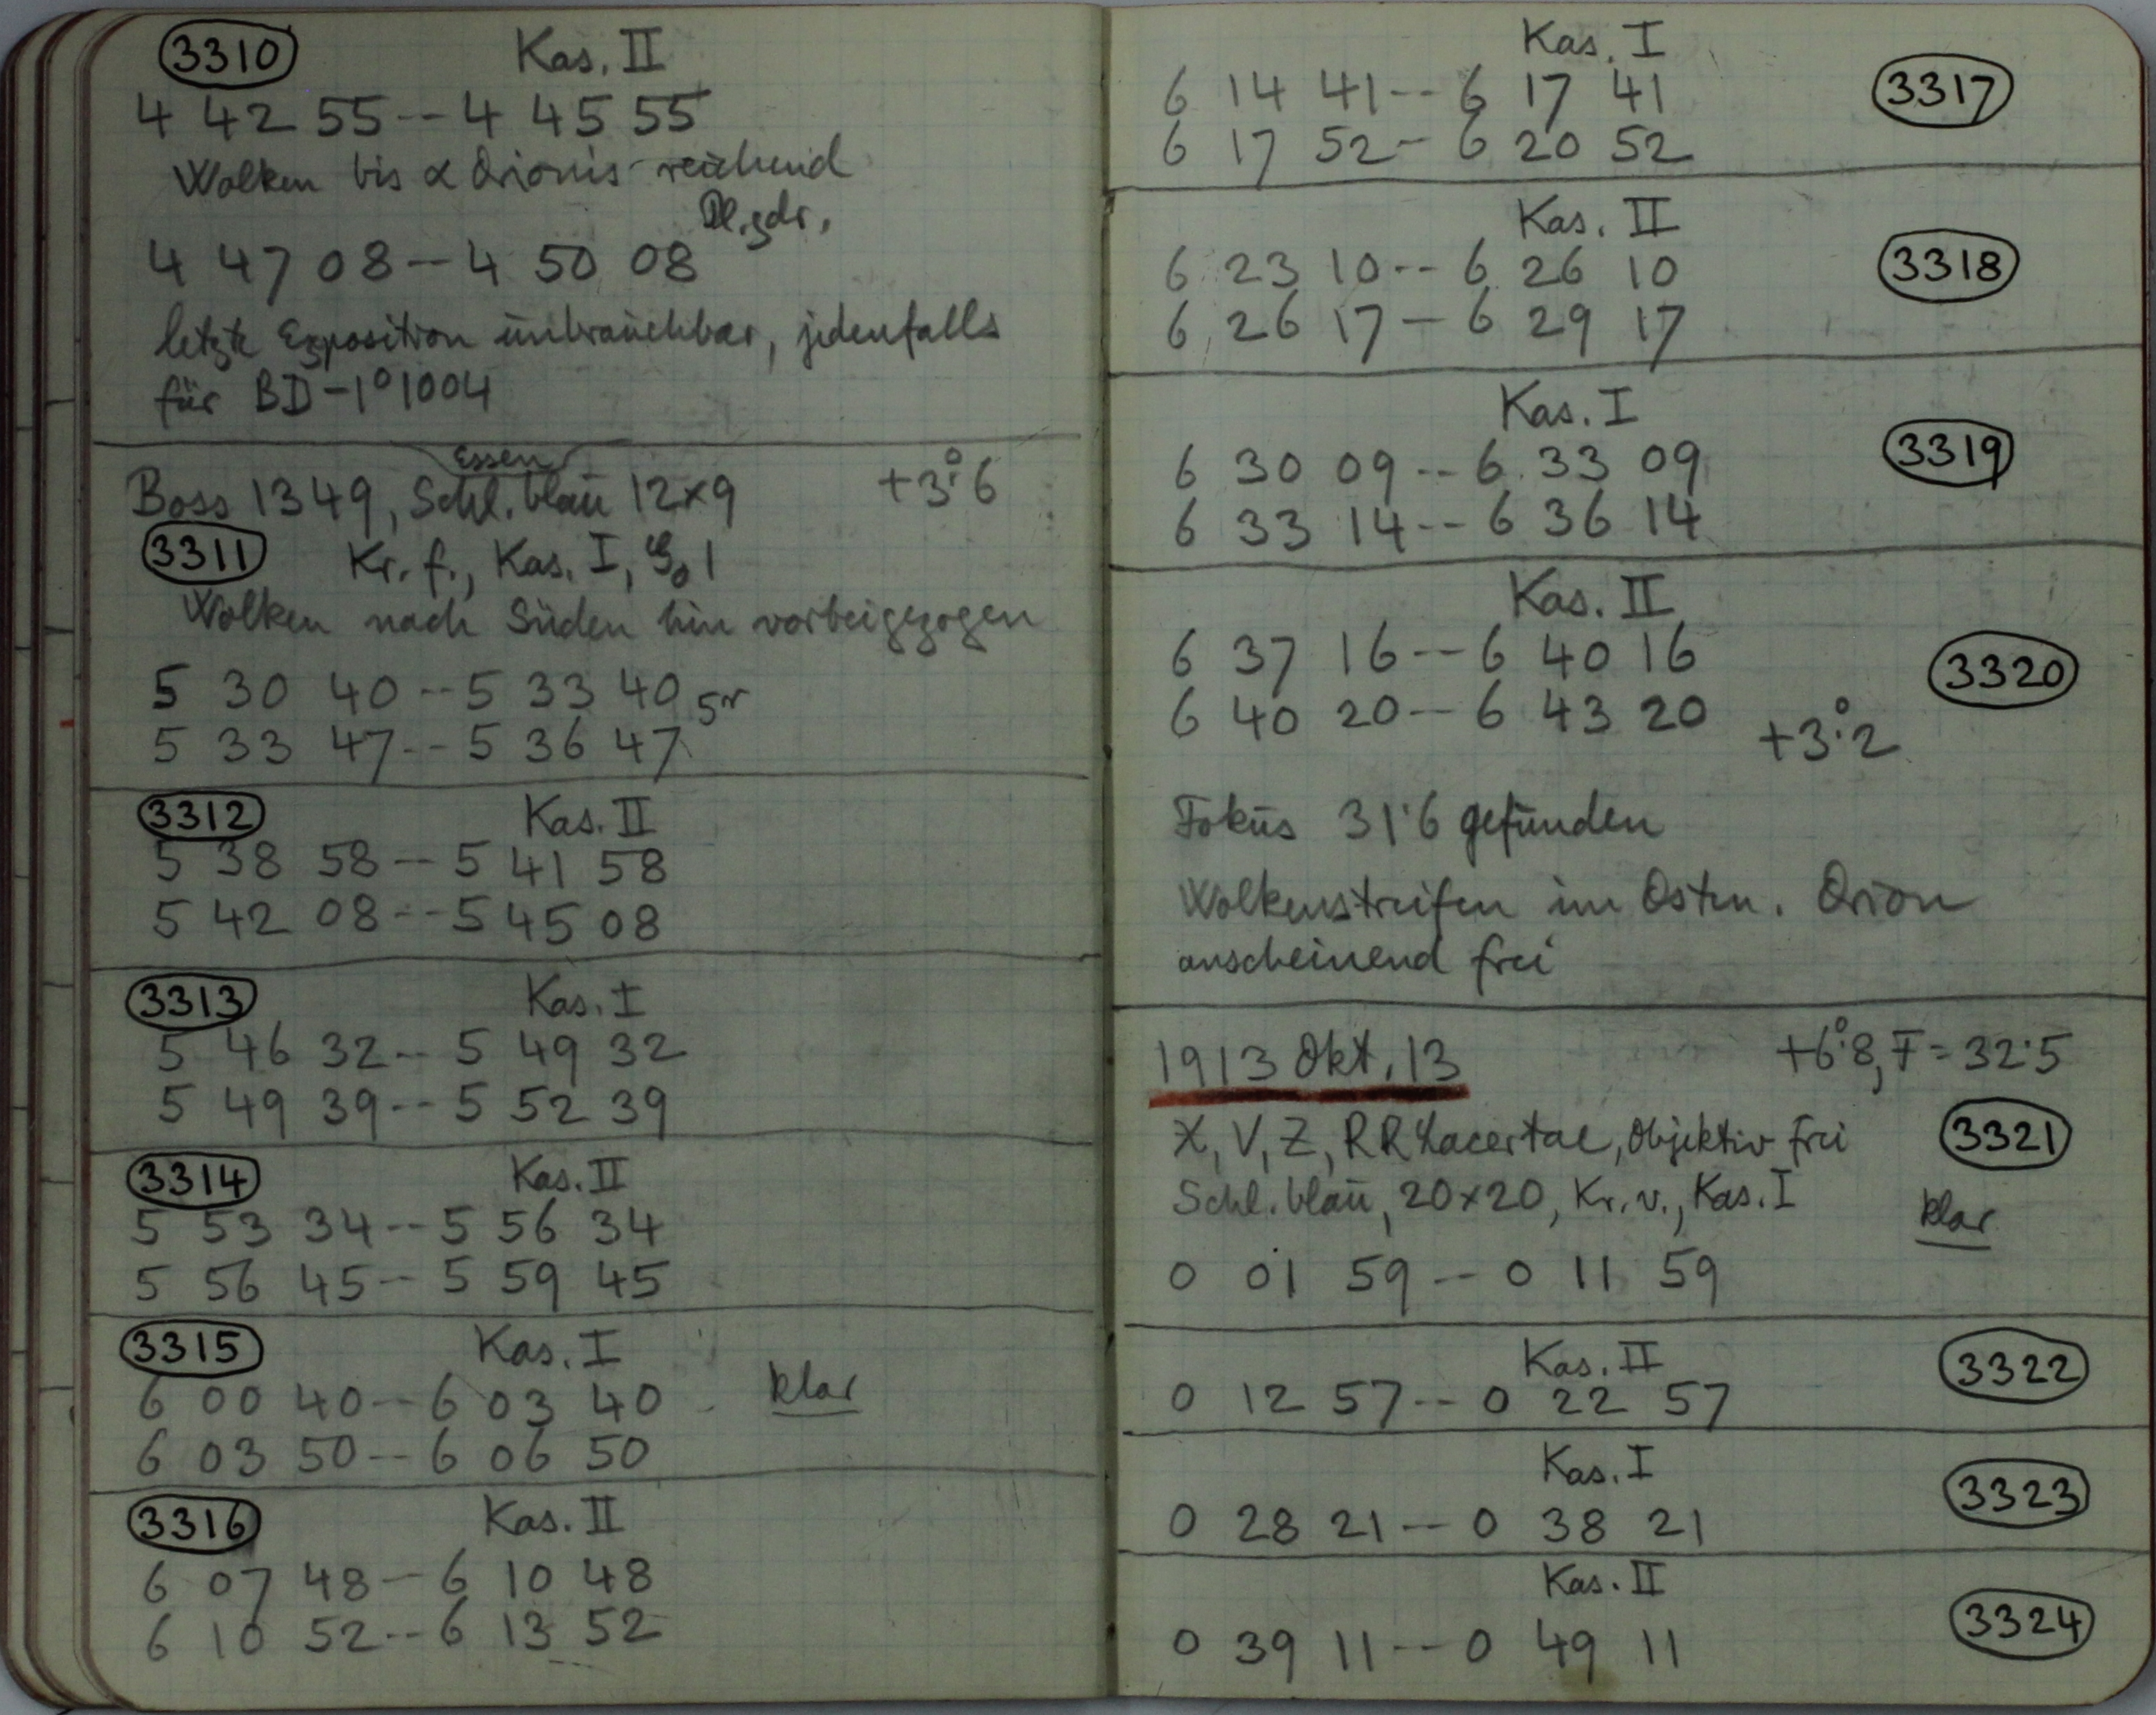 3310 Kas. II
4 42 55 -- 4 45 55
Wolken bis α Orionis reichend
Pl. gdr.
4 47 08 -- 4 50 08
letzte Exposition unbrauchbar, jedenfalls
für BD -1° 1004
Essen
Boss 1349, Schl. blau 12×9 +3°.6
3311 Kr. f., Kas. I, 1
Wolken nach Süden hin vorbeigezogen
5 30 40 -- 5 33 40
5 33 47 -- 5 36 47
3312 Kas. II
5 38 58 -- 5 41 58
5 42 08 -- 5 45 08
3313 Kas. I
5 46 32 -- 5 49 32
5 49 39 -- 5 52 39
3314 Kas. II
5 53 34 -- 5 56 34
5 56 45 -- 5 59 45
3315 Kas. I
6 00 40 -- 6 03 40 klar
6 03 50 -- 6 06 50
3316 Kas. II
6 07 48 -- 6 10 48
6 10 52 -- 6 13 52
Kas. I
6 14 41 -- 6 17 41 3317
6 17 52 - 6 20 52
Kas. II
6 23 10 -- 6 26 10 3318
6 26 17 - 6 29 17
Kas. I
6 30 09 -- 6 33 09 3319
6 33 14 -- 6 36 14
Kas. II
6 37 16 -- 6 40 16 3320
6 40 20 -- 6 43 20 +3°.2
Fokus 31.6 gefunden
Wolkenstreifen im Osten. Orion
anscheinend frei
1913 Okt. 13 +6°.8, F = 32.5
X, V, Z, RR Lacertae, Objektiv frei 3321
Schl. blau, 20×20, Kr. v., Kas. I klar
0 01 59 -- 0 11 59
Kas. II 3322
0 12 57 -- 0 22 57
Kas. I 3323
0 28 21 -- 0 38 21
Kas. II 3324
0 39 11 -- 0 49 11